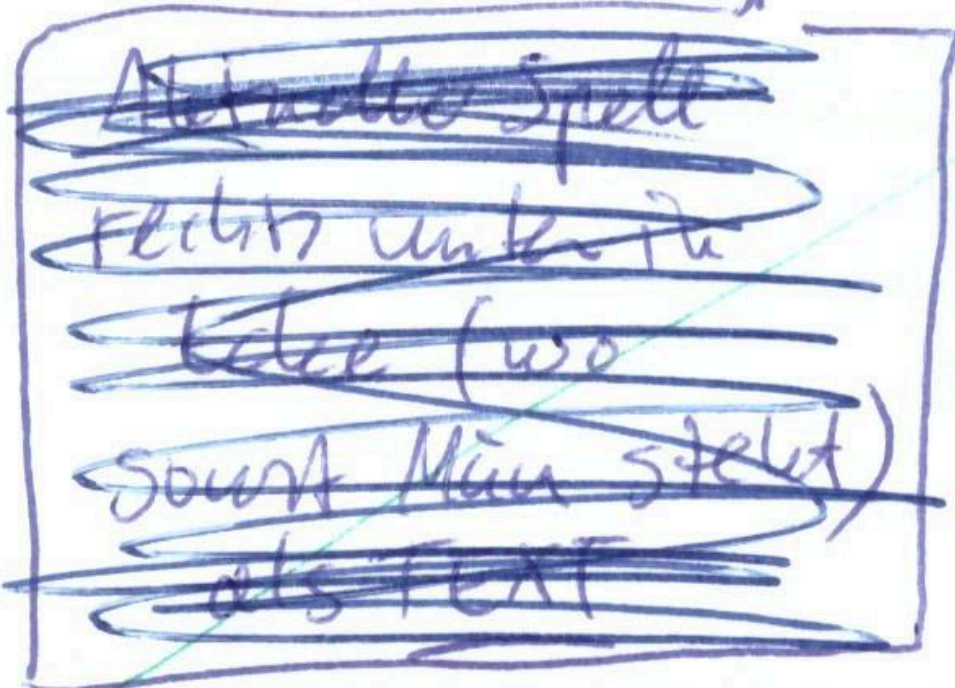 Aktuelle Spell
rechts unten in
Ecke (wo
sonst Mün steht)
als TEXT